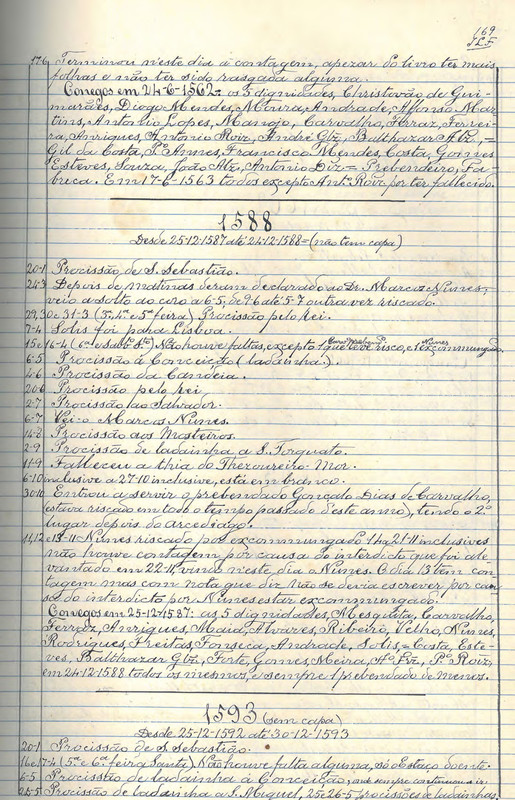 169
J.L.F
17-6 Terminou n'este dia a contagem, apezar do livro ter mais
folhas e não ter sido rasgada alguma.
Conegos em 24-6-1562: os 5 dignidades, Christovão de Gui-
marães, Diogo Mendes, Moira, Andrade, Affonso Mar-
tins, Antonio Lopes, Carvalho, Ferraz, Ferrei-
ra, Anriques, Antonio Roiz, André Glz, Balthazar Alz, =
Gil da Costa, Po Annes, Francisco Mendes, Costa, Gomes
Esteves, Souza, João Alz, Antonio Diz = Prebendeiro, Fa-
brica. Em 17-6-1563 todos excepto Anto Roiz por ter fallecido.
1588
Desde 25-12-1587 até 24-12-1588 = (não tem capa)
20-1 Procissão de S. Sebastião.
24-3 Depois de matinas deram declarado ao Dr. Marcos Nunes;
veio a solto ao coro a 6-5; de 9-6 até 5-7 outra vez riscado.
29, 30 e 31-3 (3ª, 4ª e 5ª feira) Procissão pelo rei.
7-4 Solis foi para Lisboa.
15 e 16-4 (6ª e sab. Stº) Não houve faltas, excepto 1 que teve risco, e Nunes excommungado.
6-5 Procissão á Conceição (ladainha).
4-6 Procissão da Candeia.
20-6 Procissão pelo rei
2-7 Procissão ao Salvador.
6-7 Veio Marcos Nunes.
14-8 Procissão aos Mosteiros.
2-9 Procissão de ladainha a S. Torquato.
11-9 Falleceu a thia do Thezoureiro-Mor.
6-10 inclusive a 27-10 inclusive, está em branco.
30-10 Entrou a servir o prebendado Gonçalo Dias de Carvalho,
(estava riscado em todo o tempo passado d'este anno), tendo o 2º
lugar depois do arcediago.
11, 12 e 13-11 Nunes riscado por excommungado. 14 a 21-11 inclusives
não houve contagem por causa do interdicto que foi ale-
vantado em 22-11, vindo n'este dia o Nunes. O dia 13 tem con-
tagem mas com nota que diz não se devia escrever por cau-
sa do interdicto por Nunes estar excommungado.
Conegos em 25-12-1587: as 5 dignidades, Mesquita, Carvalho,
Ferraz, Anriques, Maia, Alvares, Ribeiro, Velho, Nunes,
Rodrigues, Freitas, Fonseca, Andrade, Solis = Costa, Este-
ves, Balthazar Glz, Forte, Gomes, Meira, Po Roiz,
em 24-12-1588 todos os mesmos, e sempre 1 prebendado de menos.
1593 (sem capa)
Desde 25-12-1592 até 30-12-1593
20-1 Procissão de S. Sebastião.
16 e 17-4 (5ª e 6ª feira Santa) Não houve falta alguma, só Estaço doente.
6-5 Procissão de ladainha á Conceição,
25-5 Procissão de ladainha a S. Miguel, 25-26-5 procissões e ladainhas.